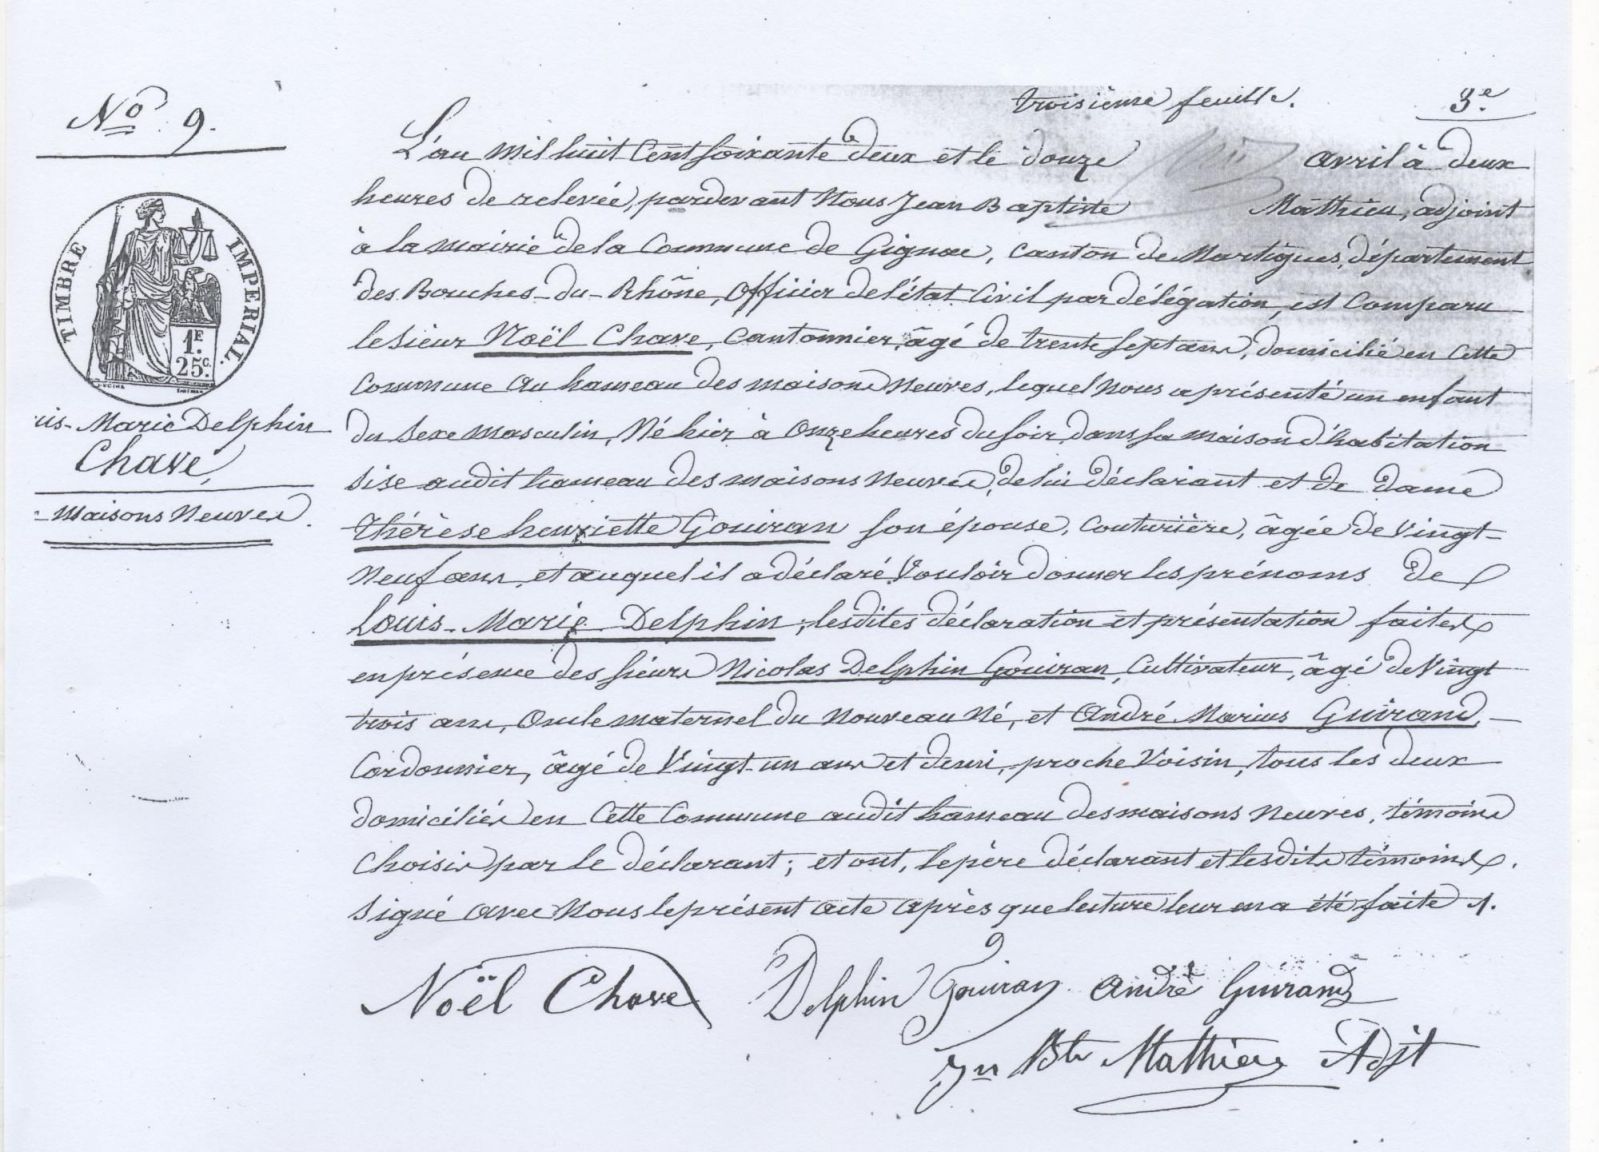 troisième feuille.
3e.
No 9.
L'an mil huit cent soixante deux et le douze avril à deux
heures de relevée, pardevant Nous Jean Baptiste Mathieu, adjoint
à la mairie de la Commune de Gignac, canton de Martigues, département
des Bouches-du-Rhône, officier de l'état Civil par délégation, est Comparu
le sieur Noël Chave, cantonnier, âgé de trente sept ans, domicilié en Cette
Commune au hameau des maisons Neuves, lequel Nous a présenté un enfant
du sexe masculin, Né hier à Onze heures du soir, dans sa maison d'habitation
sise audit hameau des maisons neuves, de lui déclarant et de dame
Thérèse henriette Gouiran son épouse, couturière, âgée de Vingt-
Neuf ans, et auquel il a déclaré Vouloir donner les prénoms de
Louis-Marie Delphin, lesdites déclaration et présentation faites
en présence des sieurs Nicolas Delphin Gouiran, Cultivateur, âgé de Vingt
trois ans, Oncle maternel du Nouveau Né, et André Marius Guirand,
Cordonnier, âgé de Vingt-un ans et demi, proche Voisin, tous les deux
domiciliés en Cette Commune audit hameau des maisons Neuves, témoins
Choisis par le déclarant; et ont, le père déclarant et lesdits témoins.
Signé avec Nous le présent acte après que lecture leur en a été faite /.
TIMBRE IMPERIAL.
1F.
25c.
uis-Marie Delphin
Chave,
Maisons Neuves.
Noël Chave Delphin Gouiran André Guirand
Jn Bte Mathieu Adjt